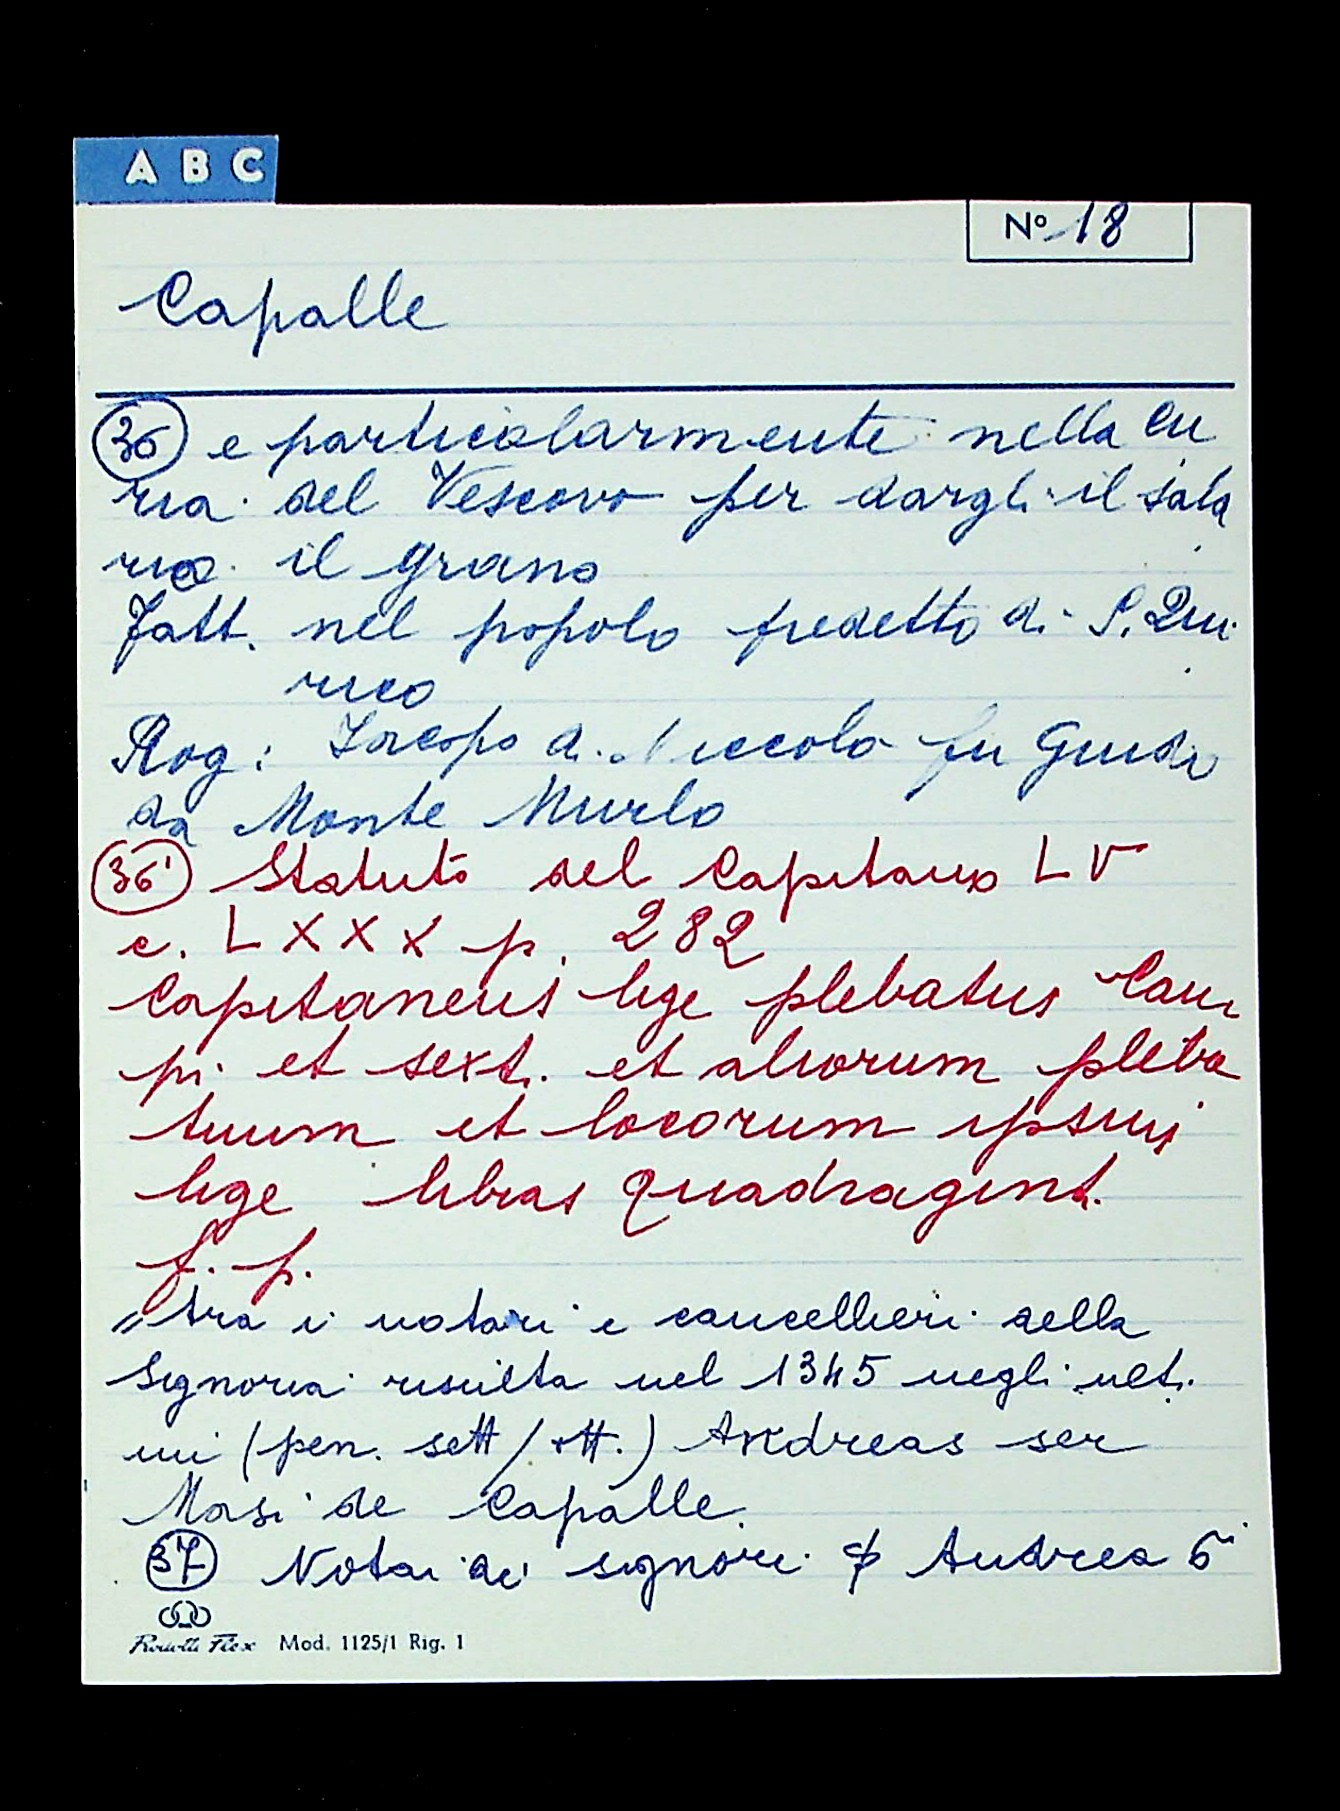 A B C
Nº 18
Capalle
36 e particolarmente nella cu
ria del Vescovo per dargli il sala
rio il grano
Fatt. nel popolo predetto di S. Qui
rico
Rog: Iacopo di Niccolò fu Guido
da Monte Murlo
36' Statuto del Capitano L V
c. L X X X p. 282
Capitaneus lige plebatus Cam
pi et sext. et aliorum pleba
tuum et locorum ipsius
lige libras quadragint.
f. p.
" tra i notari e cancellieri della
Signoria risulta nel 1345 negli ulti
mi (pen. sett/ott.) Andreas ser
Masi de Capalle.
37 Notai dei signori Andrea
Mod. 1125/1 Rig. 1